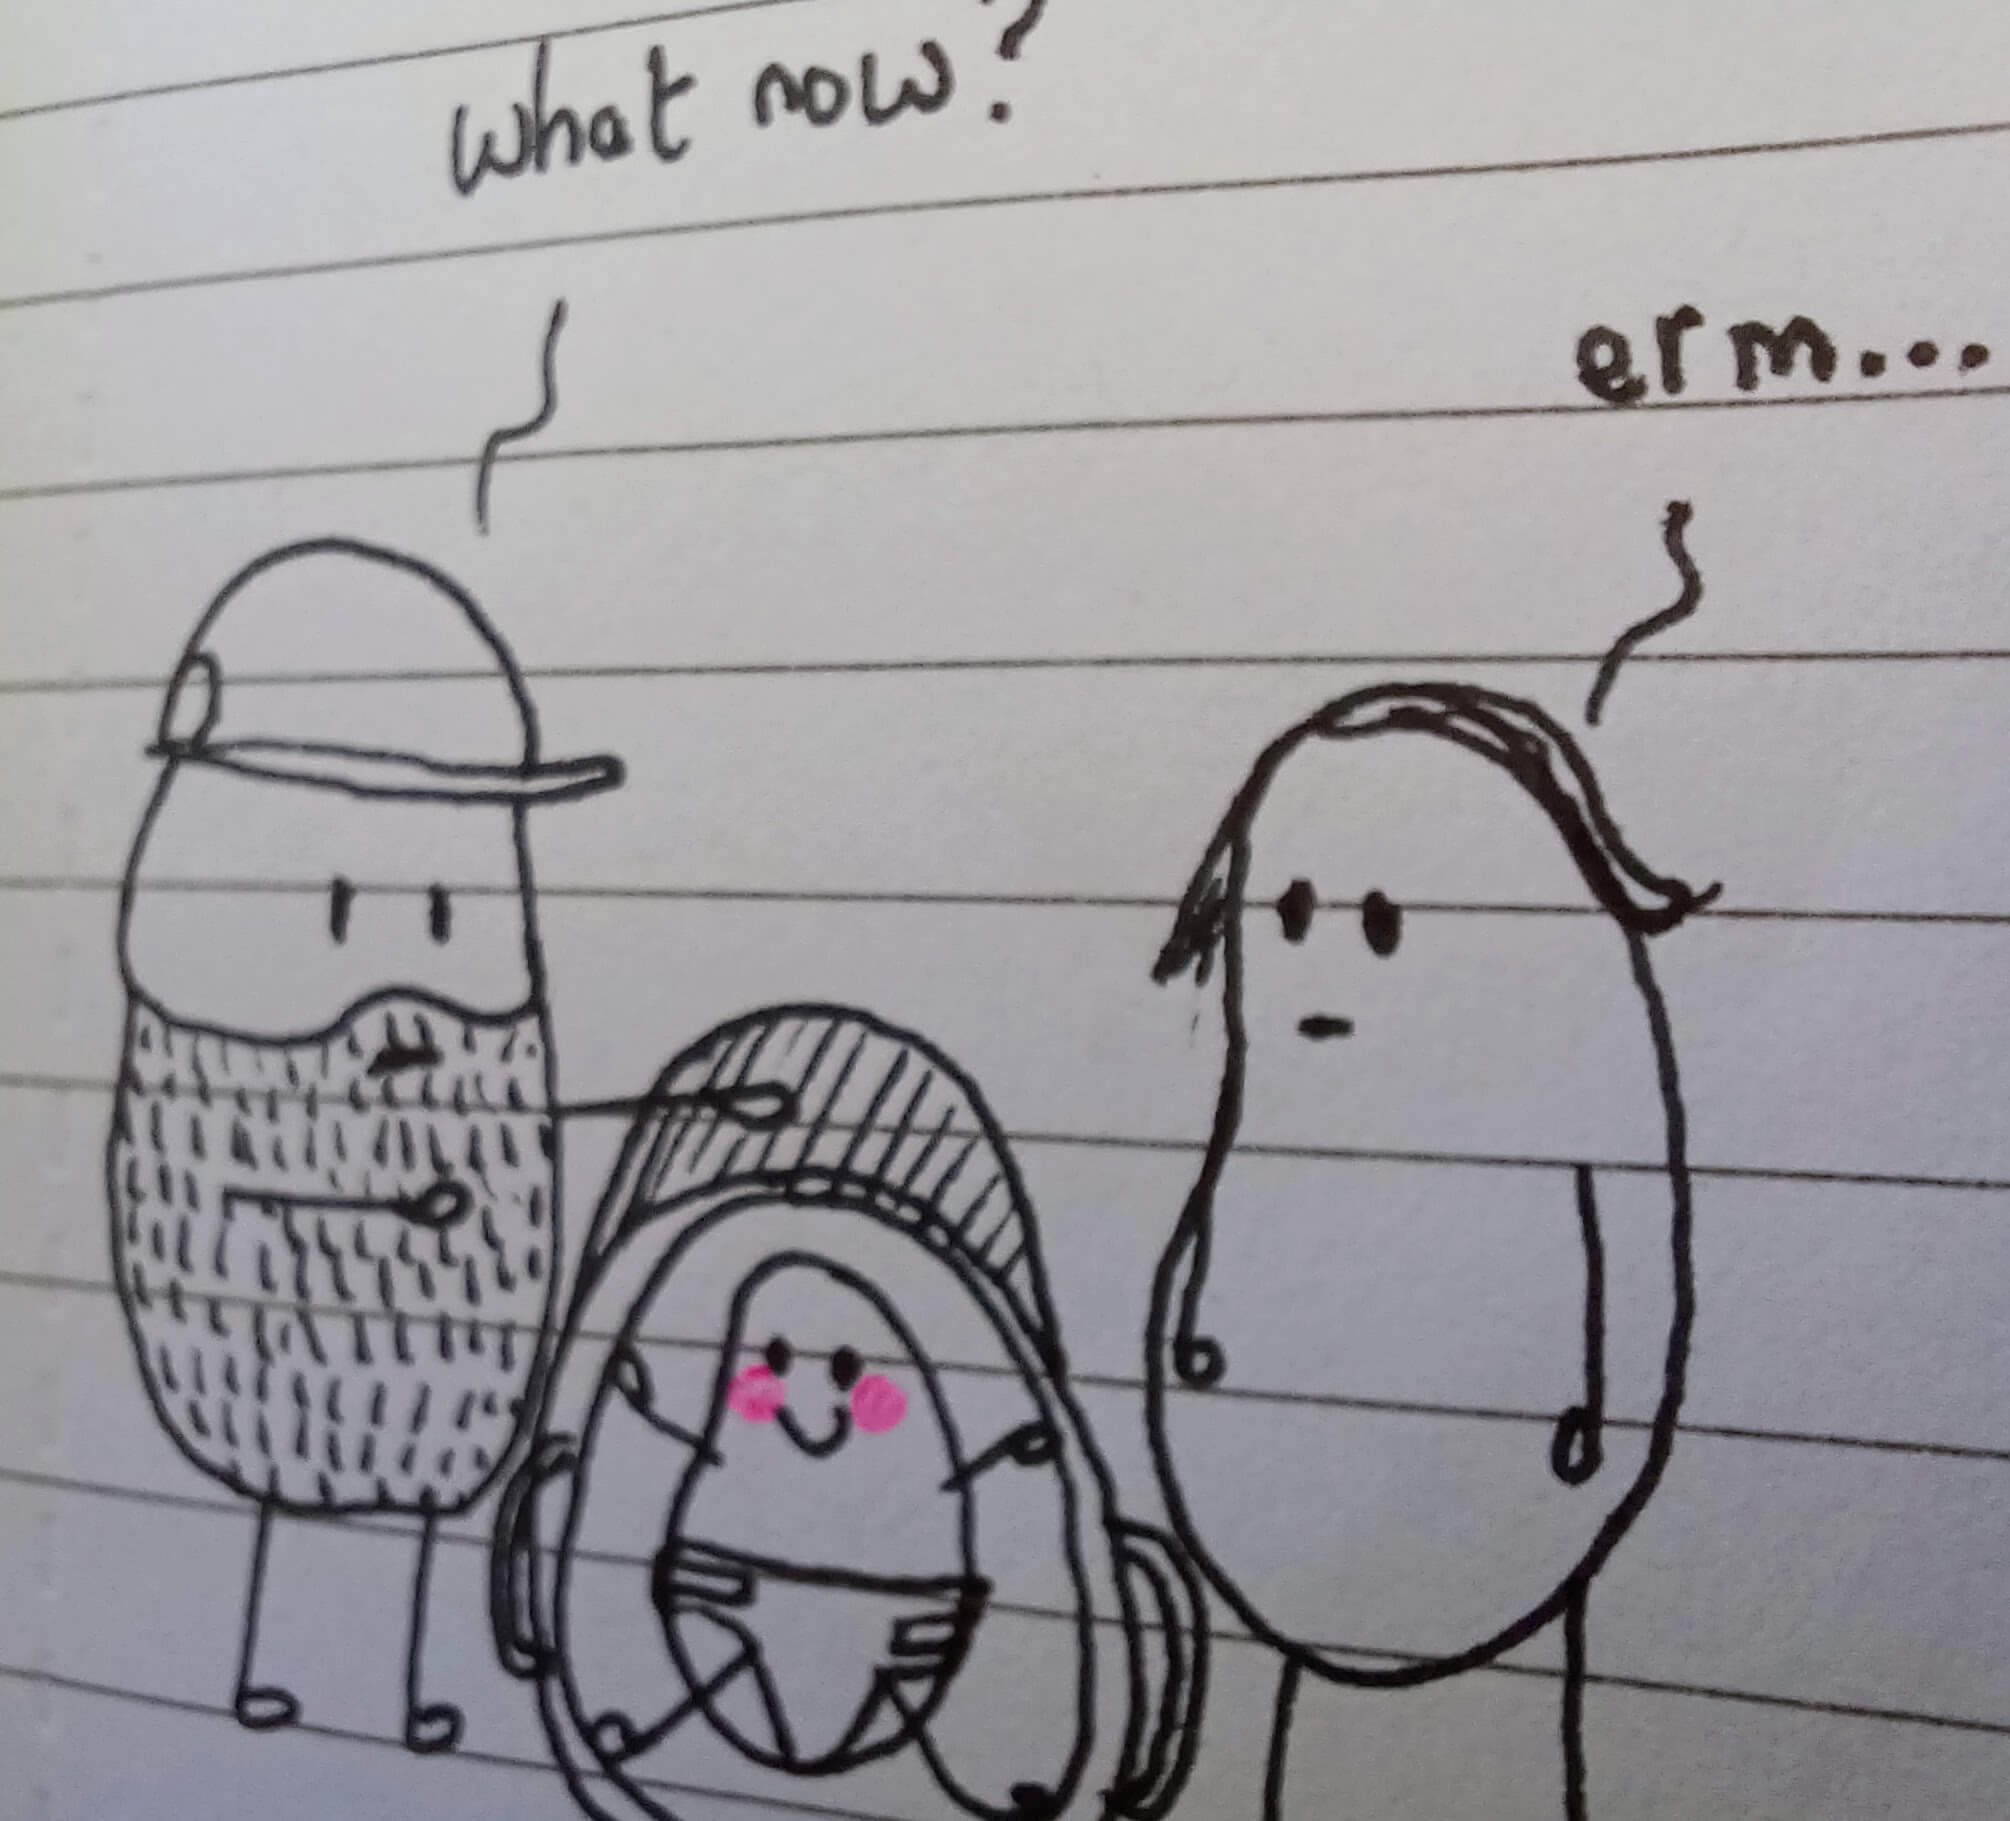 what now?
erm...